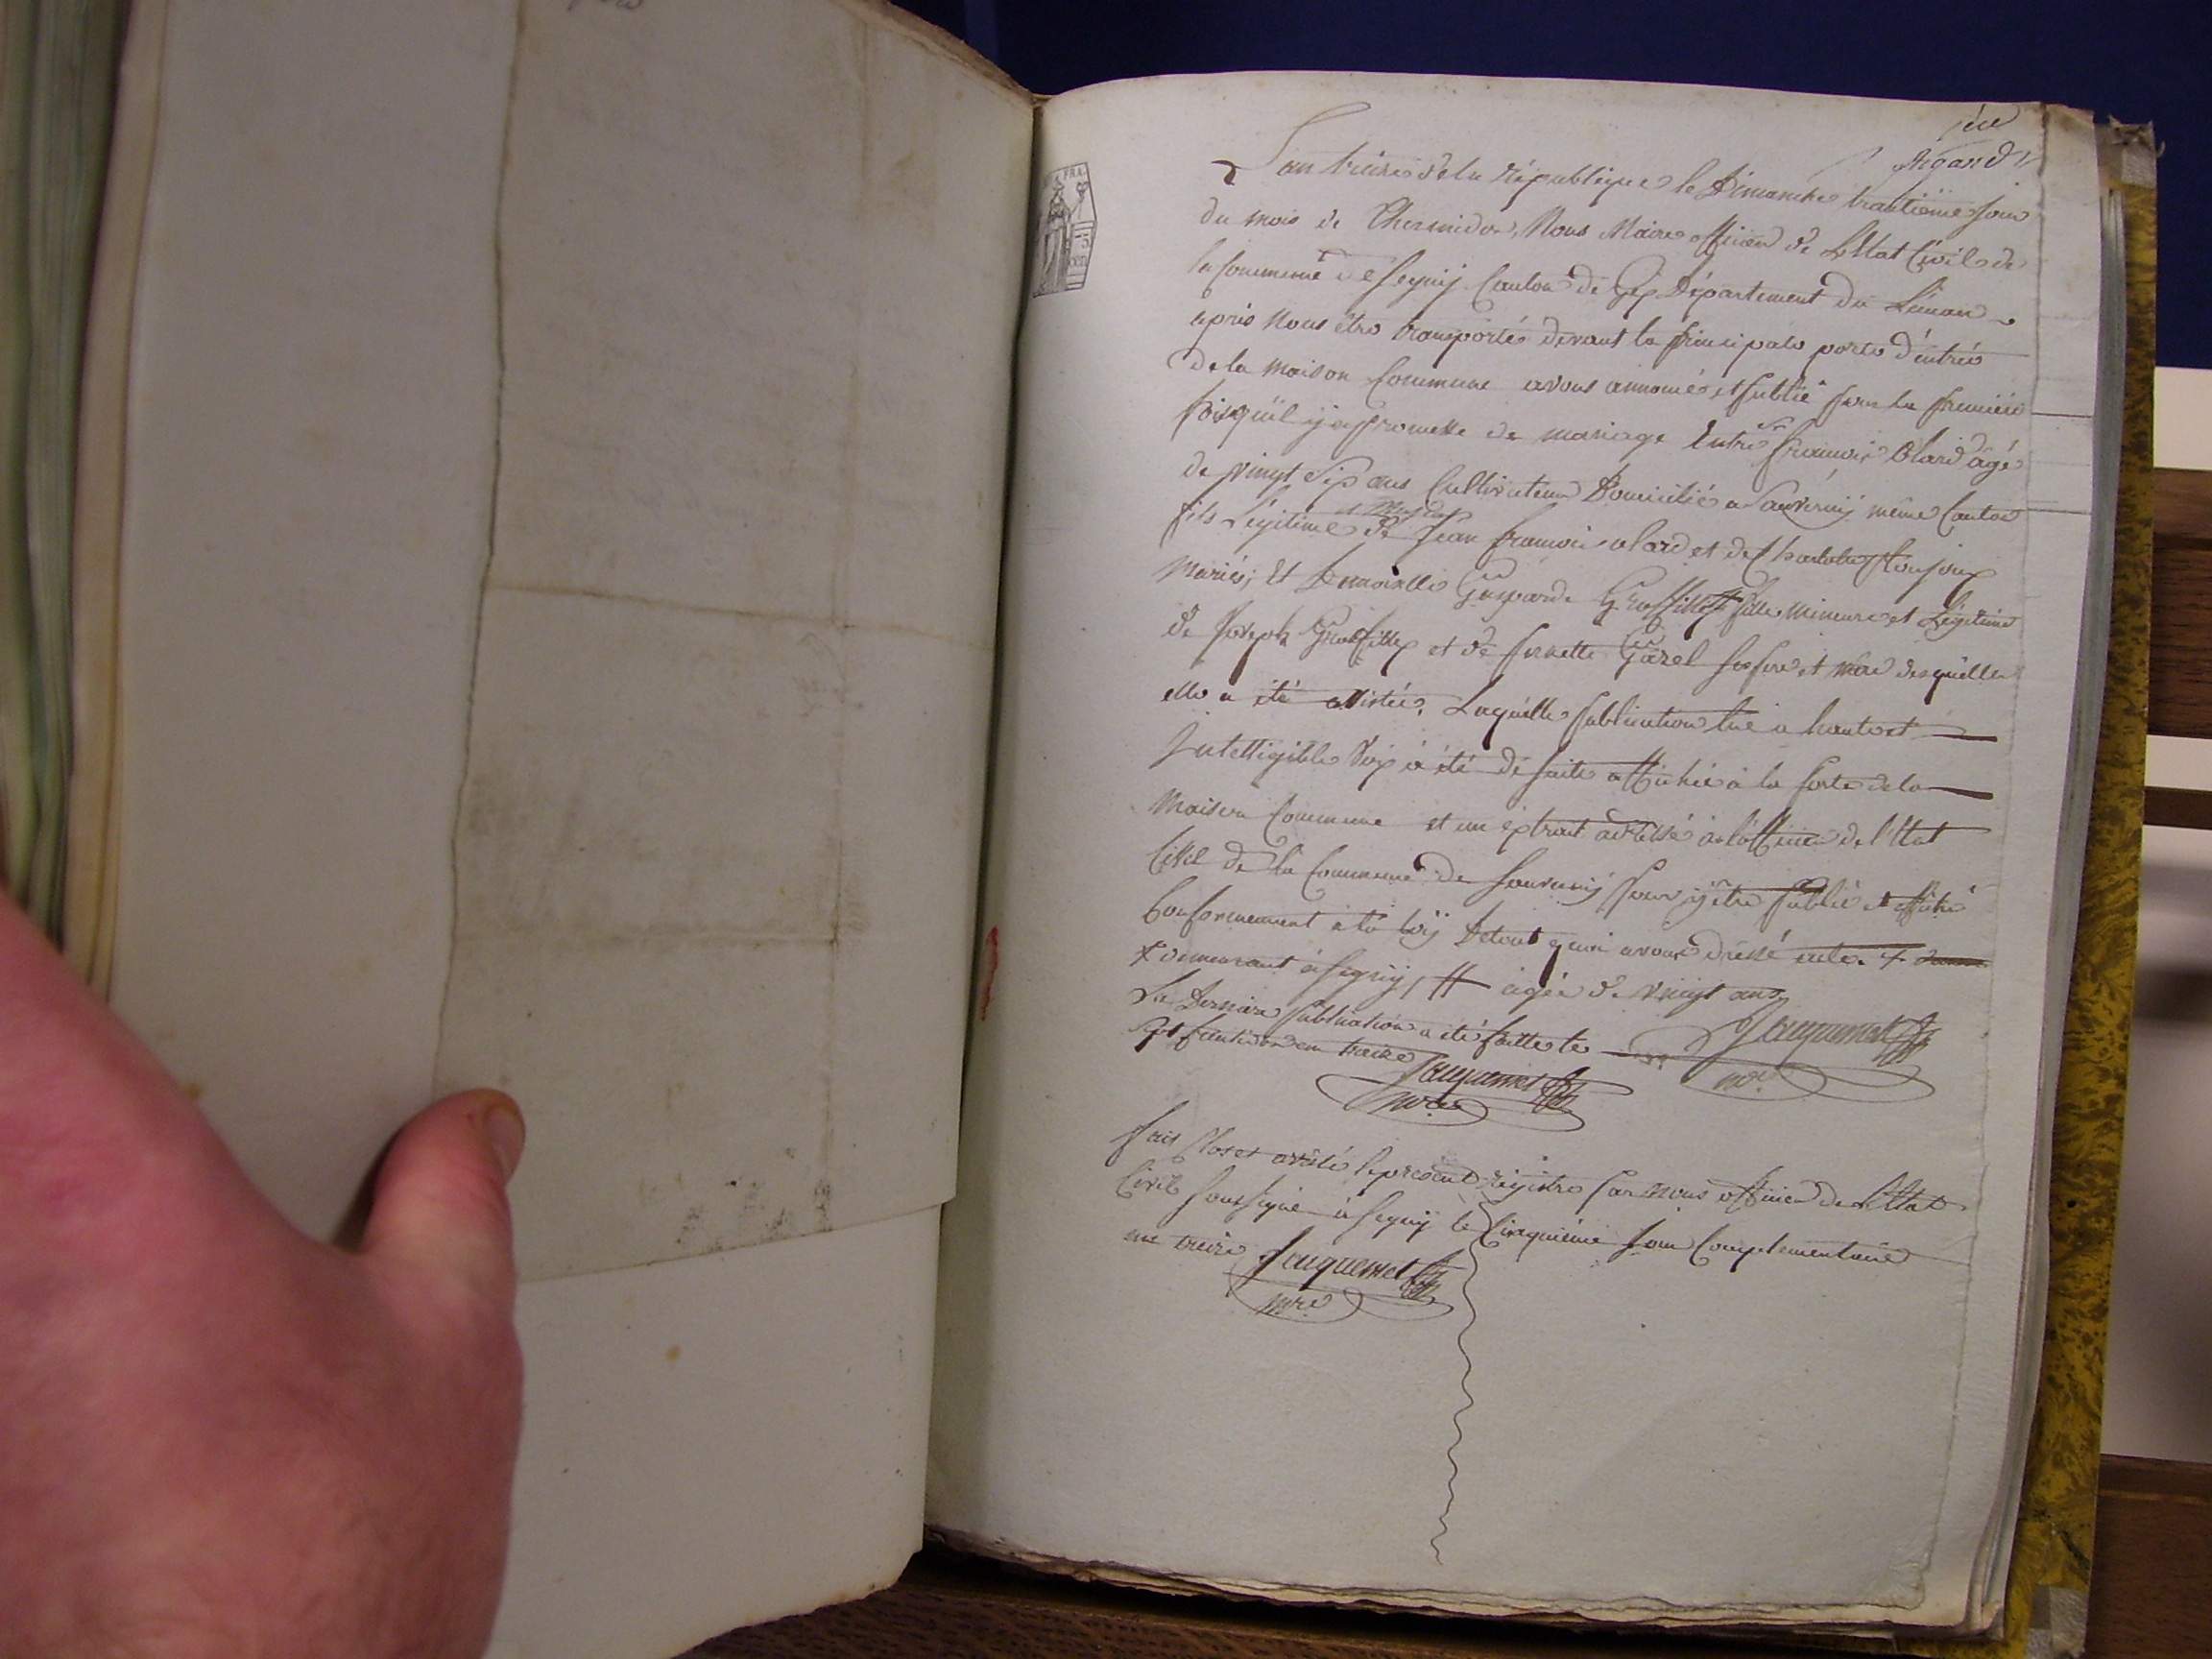 Argand
L'an treize de la République le Dimanche trantième jour
du mois de Thermidor, Nous Maire officier de L'Etat Civil de
la Commune de Segnij Canton de Gex Département du Léman
après Nous être transporté devant la principale porte d'entrée
de la maison Commune avons annoncé et publié pour la premiere
fois qu'il ij a promesse de mariage Entre Sr françois Olard âgé
de vingt six ans Cultivateur Domicilié a Sauvernij même Canton
fils Légitime et Majeur de Jean françois olard et de
Mariés; Et Demoiselle Gasparde Grosfillex fille mineure et Légitime
de Joseph Grosfillex et de Pernette Gazel ses pere et mère desquelles
elle a été assistée. Laquelle publication lue a haute et
Intelligible voix a été de suite affichée à la porte de la
Maison Commune et un extrait adréssé a l'officier de l'Etat
Civil de la Commune de Sauvernij pour ij être publié et affiché
Conformément à la loij De tout quoi avons dréssé acte. +
+ demeurant à Segnij, # agée de vingt ans
Jacquemet
mre
La Derniere publication a été faitte le
sept fructidor an treize Jacquemet
mre
Fait Clos et arrêté le présent régistre par nous officier de L'Etat
Civil soussigné à Segnij le Cinquième jour Complementaire
an treize Jacquemet
mre